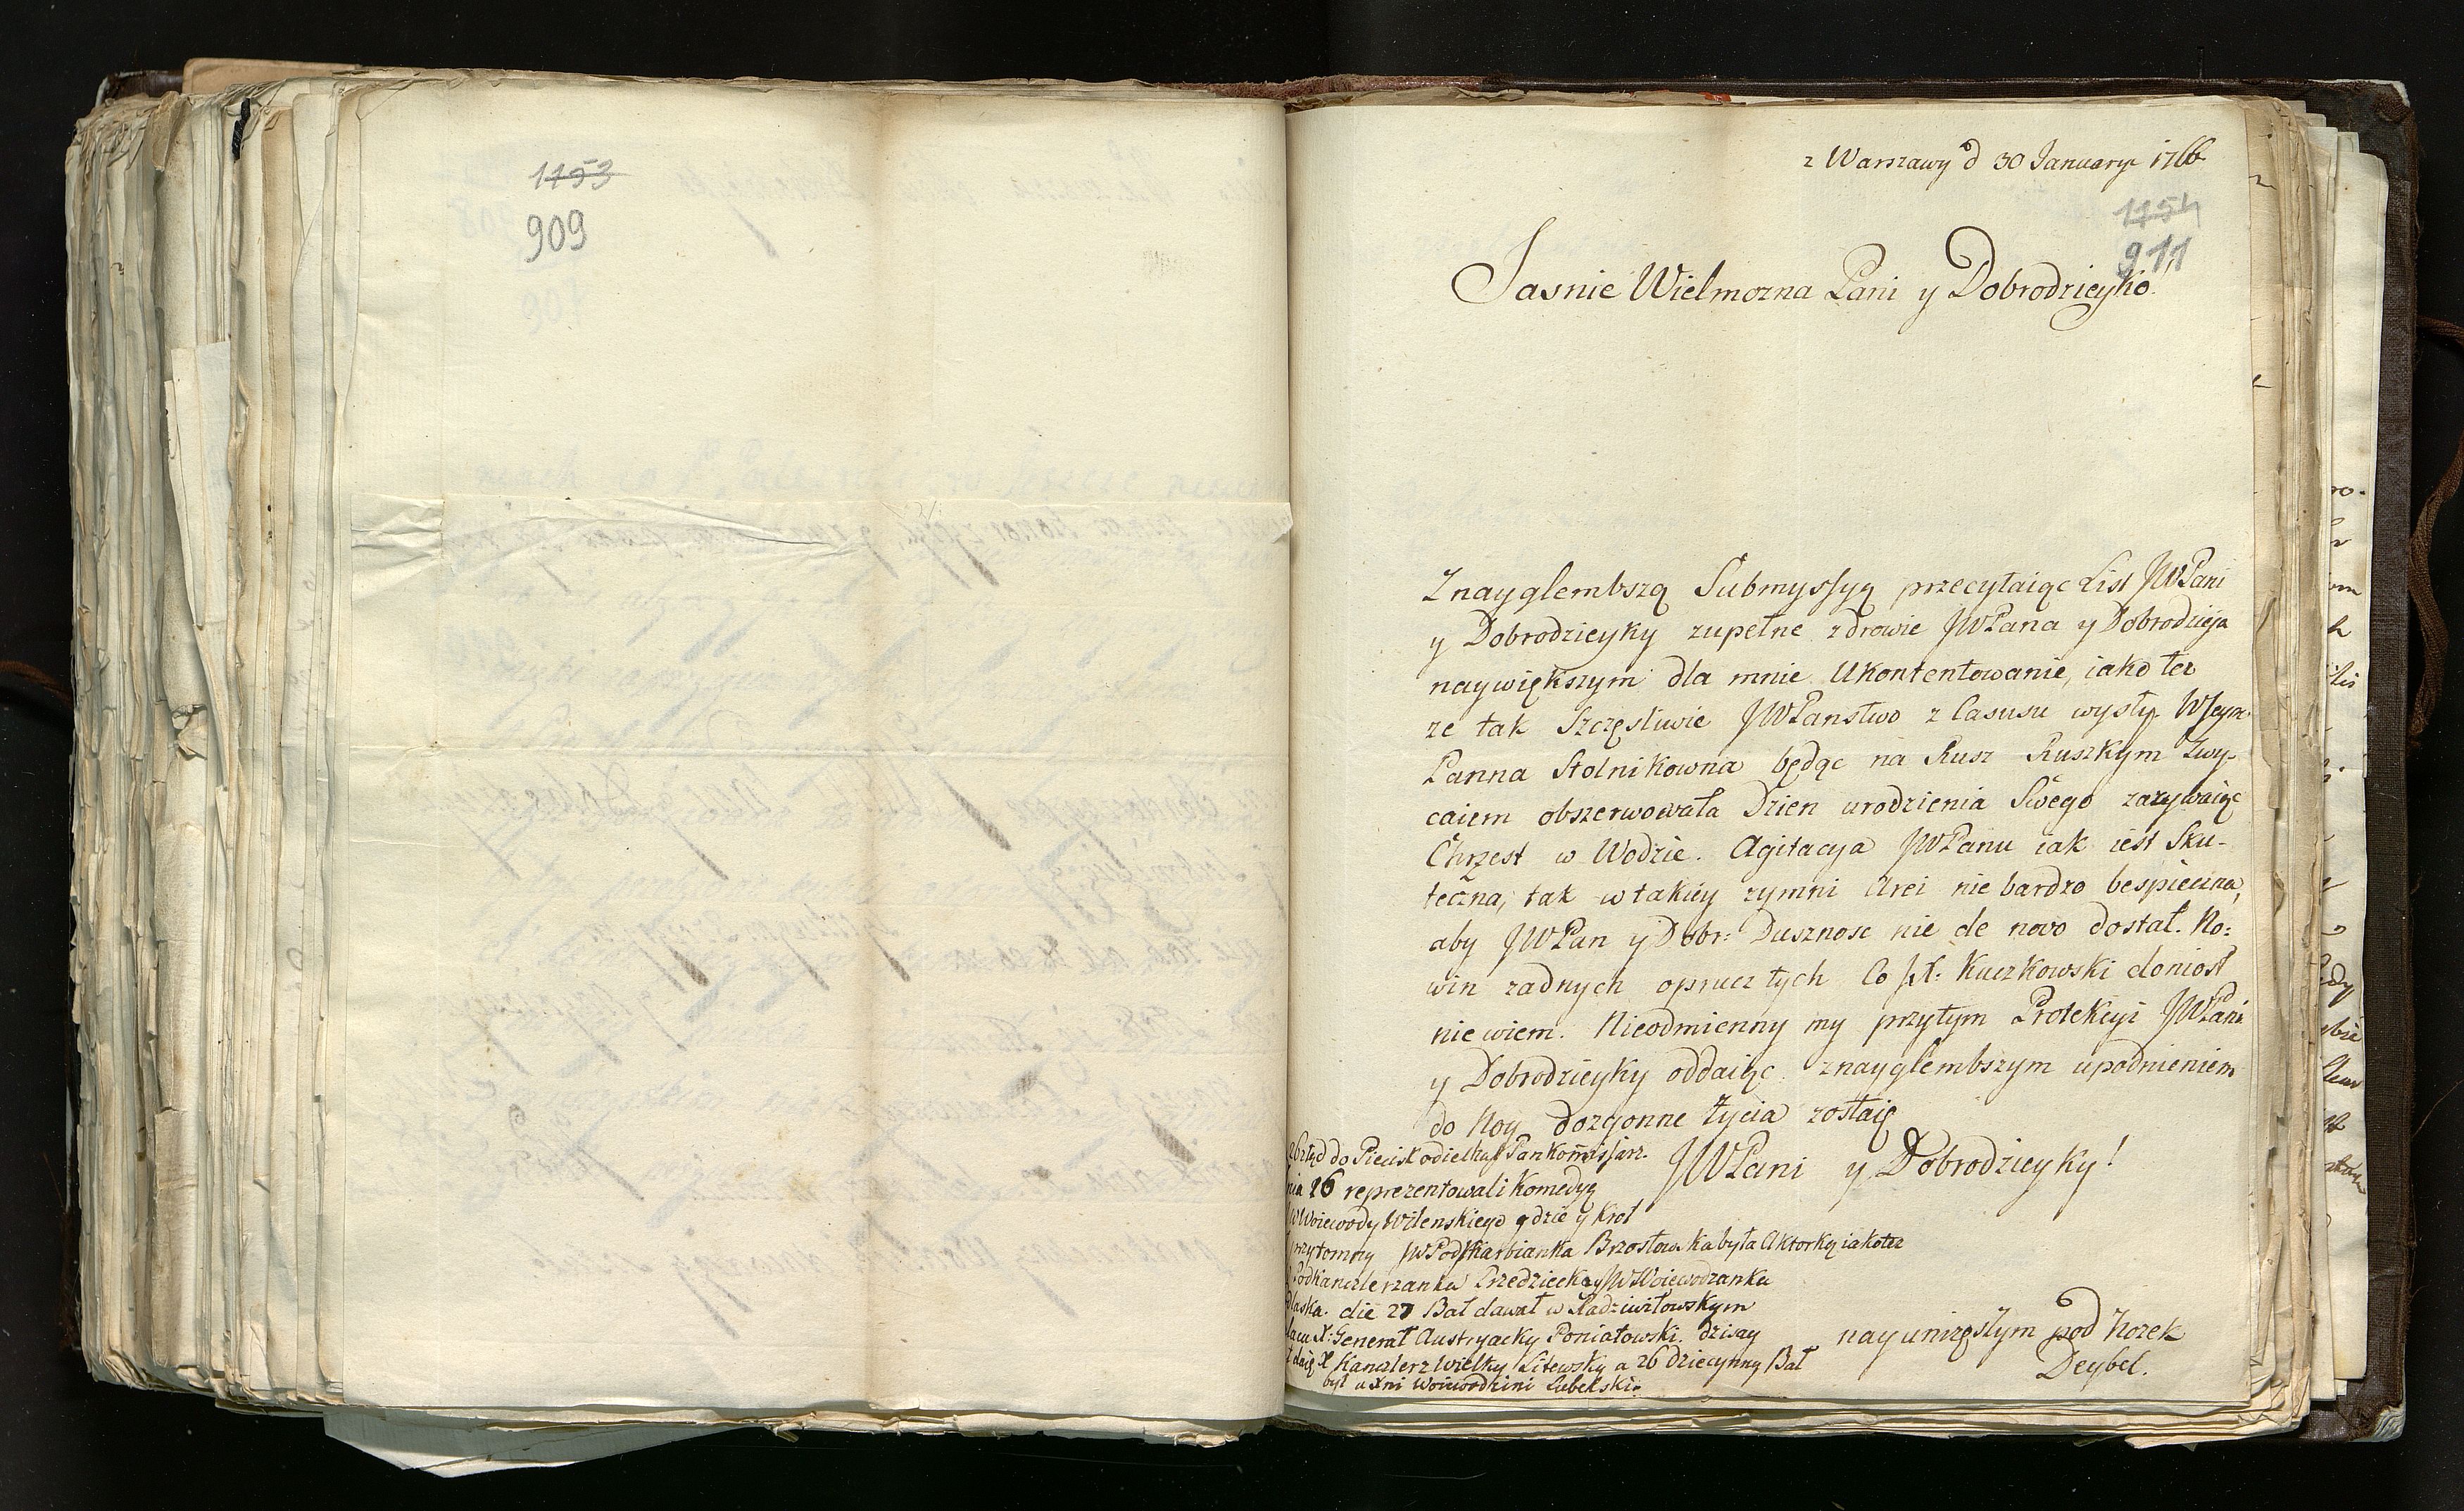 1153
909
z Warszawy d 30 January 1766
1154
911
Jasnie Wielmozna Pani y Dobrodzieyko
Z nayglembszą Submyssyą przecytaiąc List JWPani
y Dobrodzieyky zupełne zdrowie JWPana y Dobrodzieja
naywiększym dla mnie Ukontentowanie, iako tez
ze tak Szczęsliwie JWPanstwo z Casusu wysły.
Panna Stolnikowna będąc na Rusz Ruszkym Zwy-
caiem obszerwowała Dzien urodzienia Swego zazywaiąc
Chrzest w Wodzie. Agitacya JWPanu iak iest Sku-
teczna, tak w takiey zymni Arei nie bardzo bespieczna,
aby JWPan y Dobr: Dusznosc nie de novo dostał. No:
win zadnych oprucz tych Co JX: Kuczkowski doniosł
nie wiem. Nieodmienny my przytym Protekcyi JWPani
y Dobrodzieyky oddaiąc z nayglembszym upadnieniem
do Nog dozgonne Zycia zostaię
JWPani y Dobrodzieyky!
26 ztąd do Piecisk odiełhał Pan Komissarz.
nia 26 reprezentowali Komedyą
Woiewody Wilenskiego gdzie y Krol
przytomny JWPodskarbianka Brzostowska była Aktorką iako tez
Podkanclerzanka Przedziecka y JWWoiewodzanka
dlaska. die 27 Bal dawał w Radziwiłowskym
łacu X: Generał Austryacky Poniatowski. dzisay
daię X Kanclerz Wielky Litewsky a 26 dziecynny Bal
był u Xni Woiewodzini Lubelski:
nayunizęstym pod Nozek
Deybel.